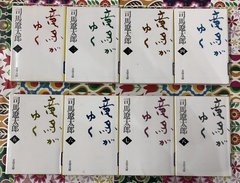 司馬遼太郎
竜馬が
ゆく
司馬遼太郎
竜馬が
ゆく
司馬遼太郎
竜馬が
ゆく
司馬遼太郎
竜馬が
ゆく
司馬遼太郎
竜馬が
ゆく
司馬遼太郎
竜馬が
ゆく
司馬遼太郎
竜馬が
ゆく
七
司馬遼太郎
竜馬が
ゆく
八